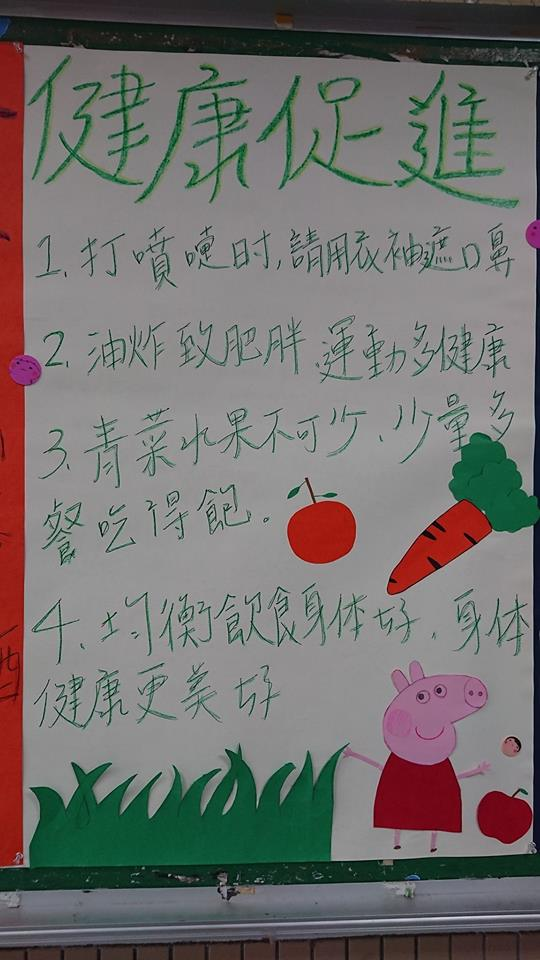 健康促進
1.打噴嚏时,請用衣袖遮口鼻
2.油炸致肥胖.運動多健康
3.青菜水果不可少、少量多
餐吃得飽。
4.均衡飲食身体好.身体
健康更美好
酒